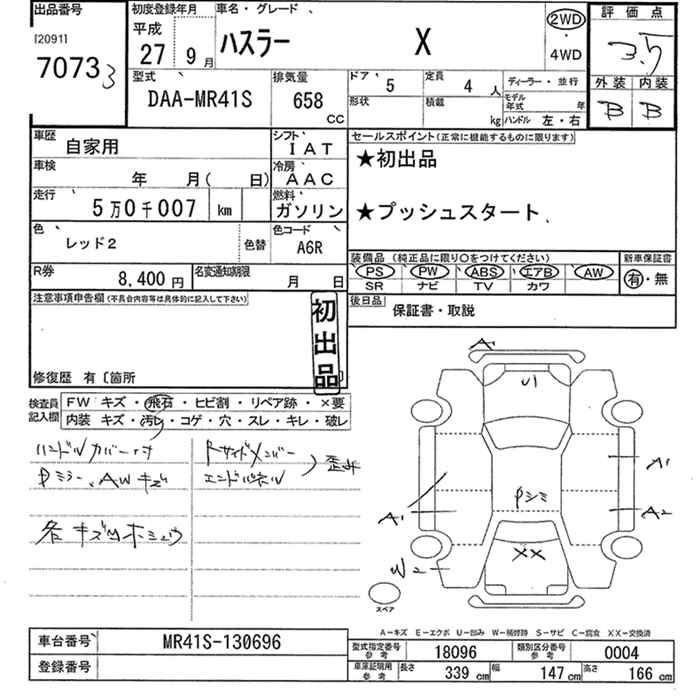 出品番号
[2091]
7073 3
初度登録年月
平成
27 9月
車名・グレード
ハスラー X
2WD
・
4WD
評価点
3.5
外装 内装
B B
型式
DAA-MR41S
排気量
658
CC
ドア 5
定員 4 人
形状
積載 kg
ディーラー・並行
モデル年式 年
ハンドル 左・右
車歴 自家用
シフト IAT
車検 年 月( 日)
冷房 AAC
走行 5万0千007 km
燃料 ガソリン
色 レッド2 色替
色コード A6R
R券 8,400円
名変通知期限 月 日
セールスポイント(正常に機能するものに限ります)
★初出品
★プッシュスタート
装備品 (純正品に限り○をつけてください)
PS PW ABS エアB AW
SR ナビ TV カワ
新車保証書
有・無
後日品 保証書・取説
注意事項申告欄(不具合内容等は具体的に記入して下さい)
初出品
修復歴 有〔箇所 〕
検査員記入欄
FW キズ・飛石・ヒビ割・リペア跡・×要
内装 キズ・汚れ・コゲ・穴・スレ・キレ・破レ
ハンドルカバー付
Pミラー、AWキズ
各キズ凹
Rサイドメンバー
エンドパネル
歪み
A1
U1
A1
A1
A2
Pシミ
W2
XX
スペア
A-キズ E-エクボ U-凹み W-補修跡 S-サビ C-腐食 XX-交換済
車台番号 MR41S-130696
登録番号
型式指定番号 参考 18096
類別区分番号 参考 0004
車庫証明用 参考 長さ 339 cm 幅 147 cm 高さ 166 cm